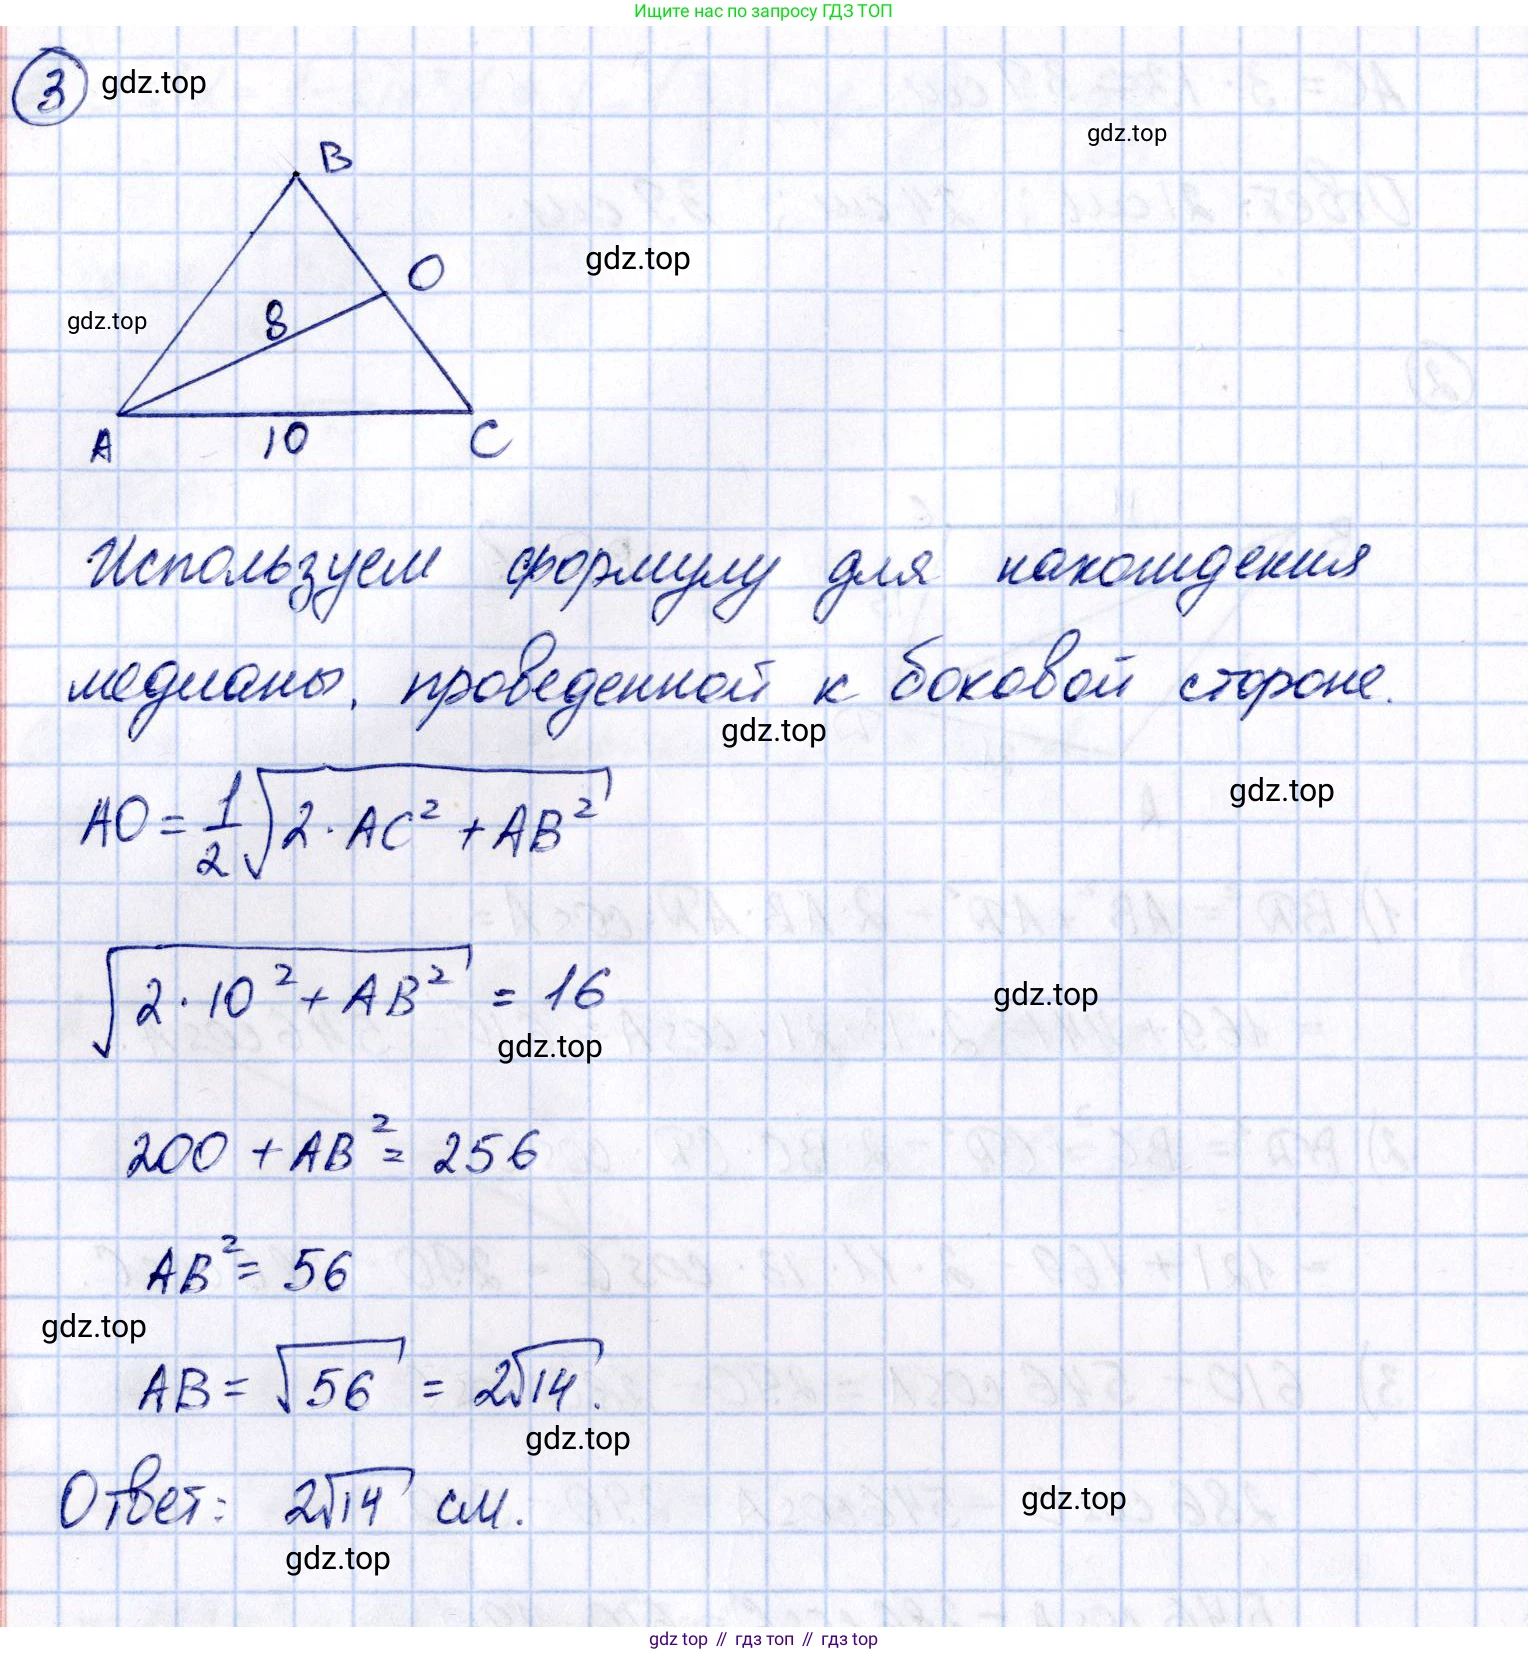 Ищите нас по запросу ГДЗ ТОП
3 gdz.top
gdz.top
B
gdz.top
O
gdz.top
8
A 10 C
Используем формулу для нахождения
медианы, проведенной к боковой стороне.
gdz.top
gdz.top
AO = 1/2 √(2 · AC² + AB²)
√(2 · 10² + AB²) = 16
gdz.top
gdz.top
200 + AB² = 256
AB² = 56
gdz.top
AB = √56 = 2√14.
gdz.top
Ответ: 2√14 см.
gdz.top
gdz.top
gdz top // гдз топ // гдз top